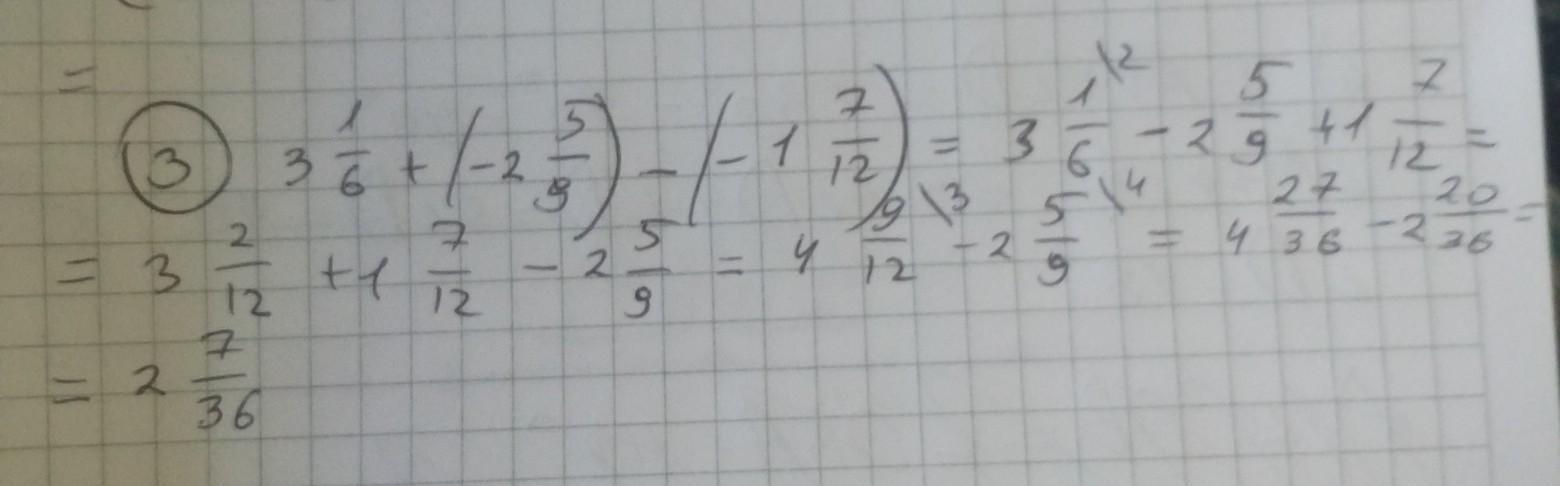 =
③ 3 1/6 + (-2 5/9) - (-1 7/12) = 3 1/6 \2 - 2 5/9 + 1 7/12 =
= 3 2/12 + 1 7/12 - 2 5/9 = 4 9/12 \3 - 2 5/9 \4 = 4 27/36 - 2 20/36 =
= 2 7/36